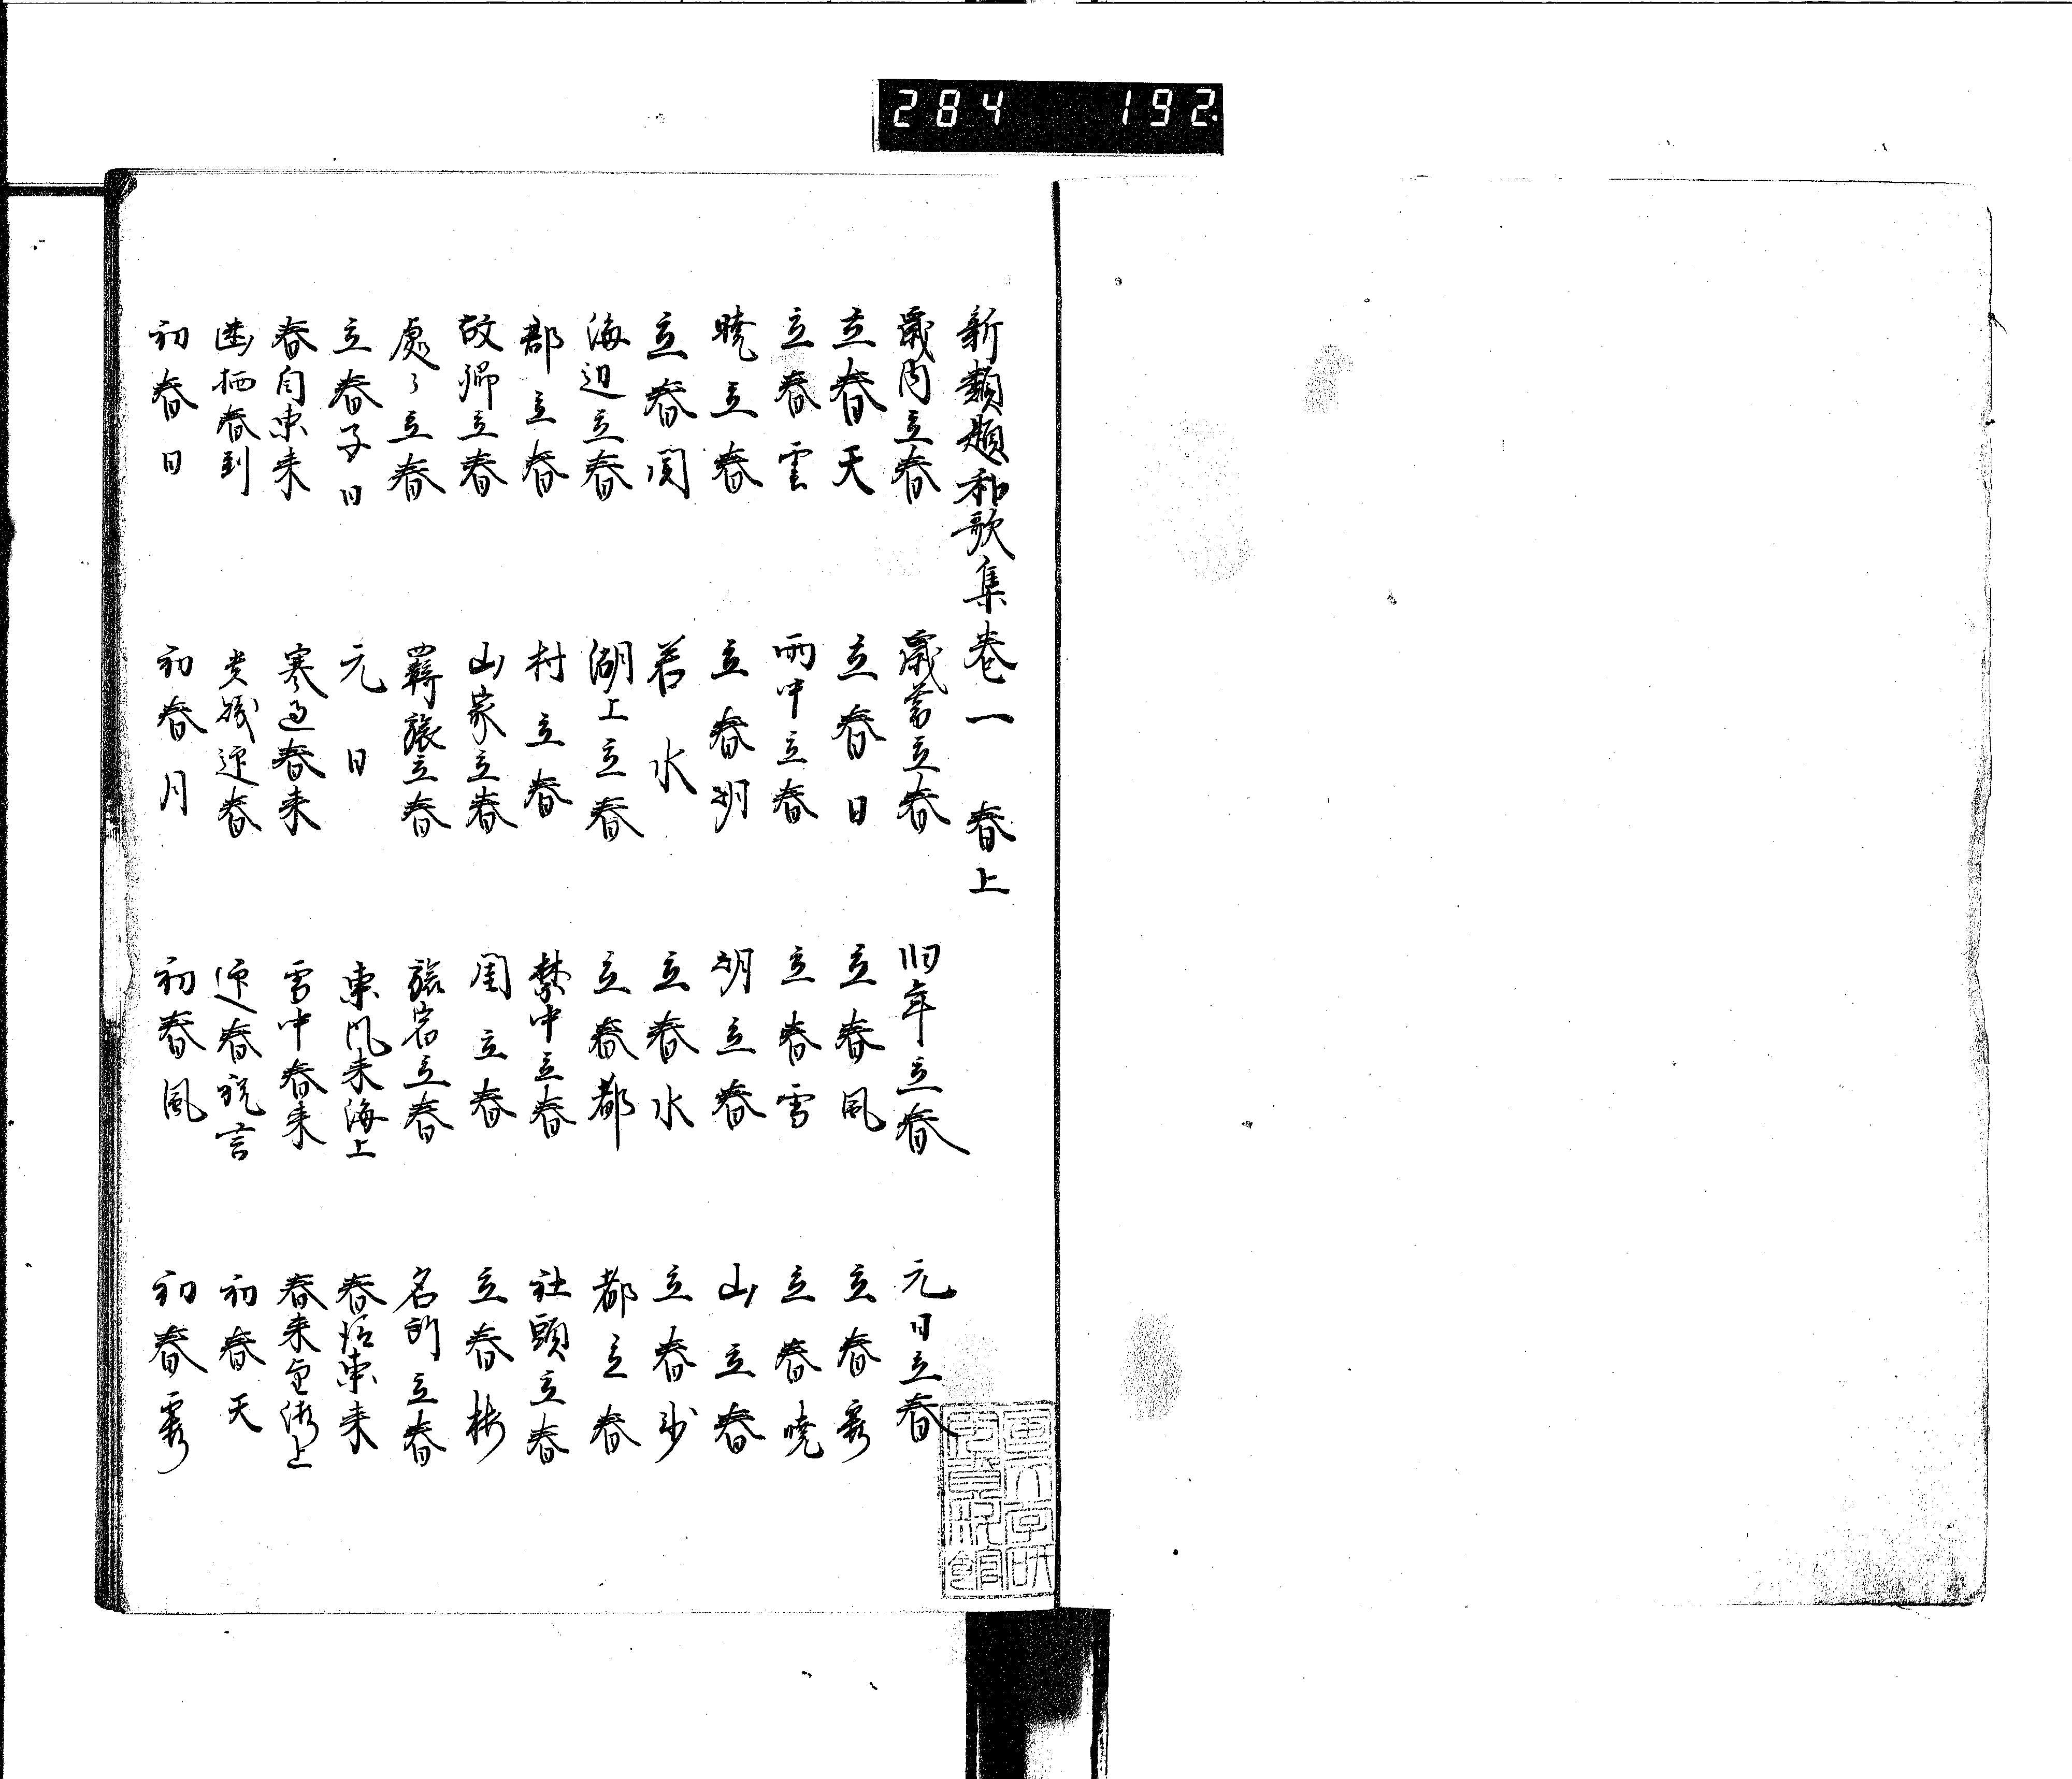 284 192
新類題和歌集巻一 春上
歳内立春 歳暮立春 旧年立春 元日立春
立春天 立春日 立春風 立春霞
立春雲 雨中立春 立春雪 立春暁
暁立春 立春朝 朝立春 山立春
立春関 若水 立春水 立春
海辺立春 湖上立春 立春都 都立春
立春 村立春 禁中立春 社頭立春
故郷立春 山家立春 閨立春 立春梅
處々立春 羇旅立春 旅宿立春 名所立春
立春子日 元日 東風来海上 春従東来
春自東来 寒過春来 雪中春来 春来上
幽栖春到 貴賤迎春 迎春祝言 初春天
初春日 初春月 初春風 初春霞
国文学研
究資料館